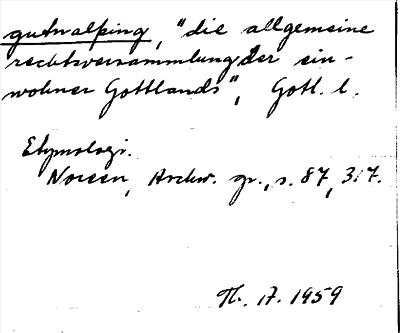 gutnalþing, "die allgemeine
rechtsversammlung der ein-
wohner Gottlands", Gotl. l.
Etymologi.
Noreen, Archiv. gr., s. 87, 317.
Th. 17. 1959